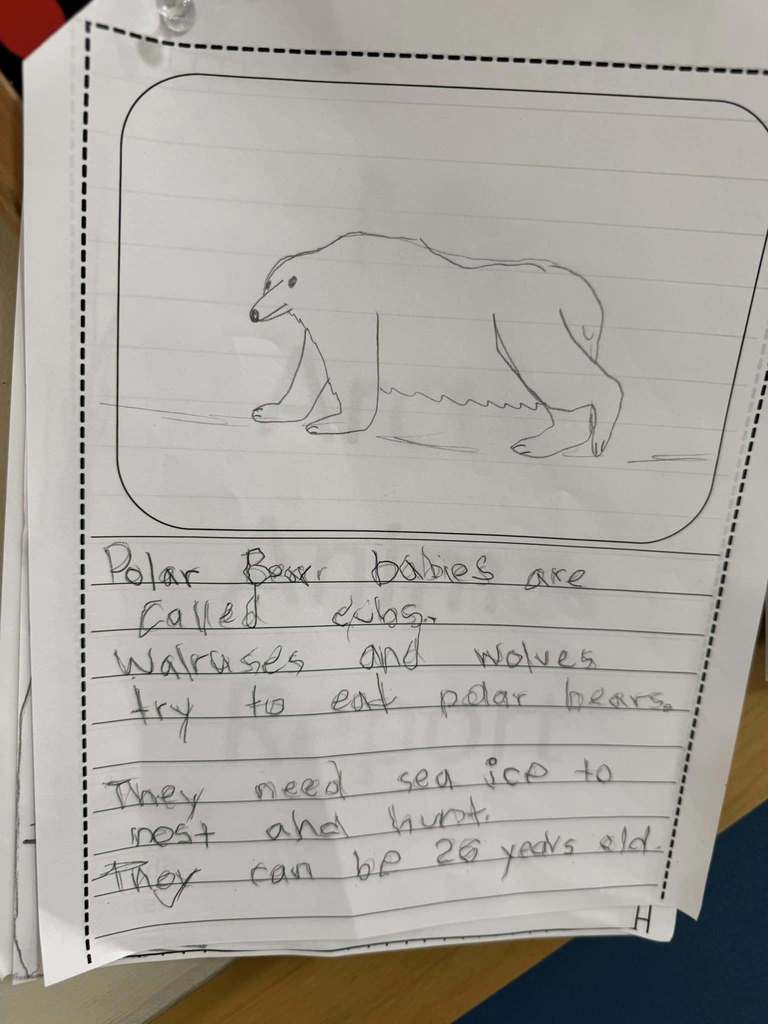 Polar Bear babies are
called cubs.
Walruses and wolves
try to eat polar bears.
They need sea ice to
rest and hunt.
They can be 26 years old.
H